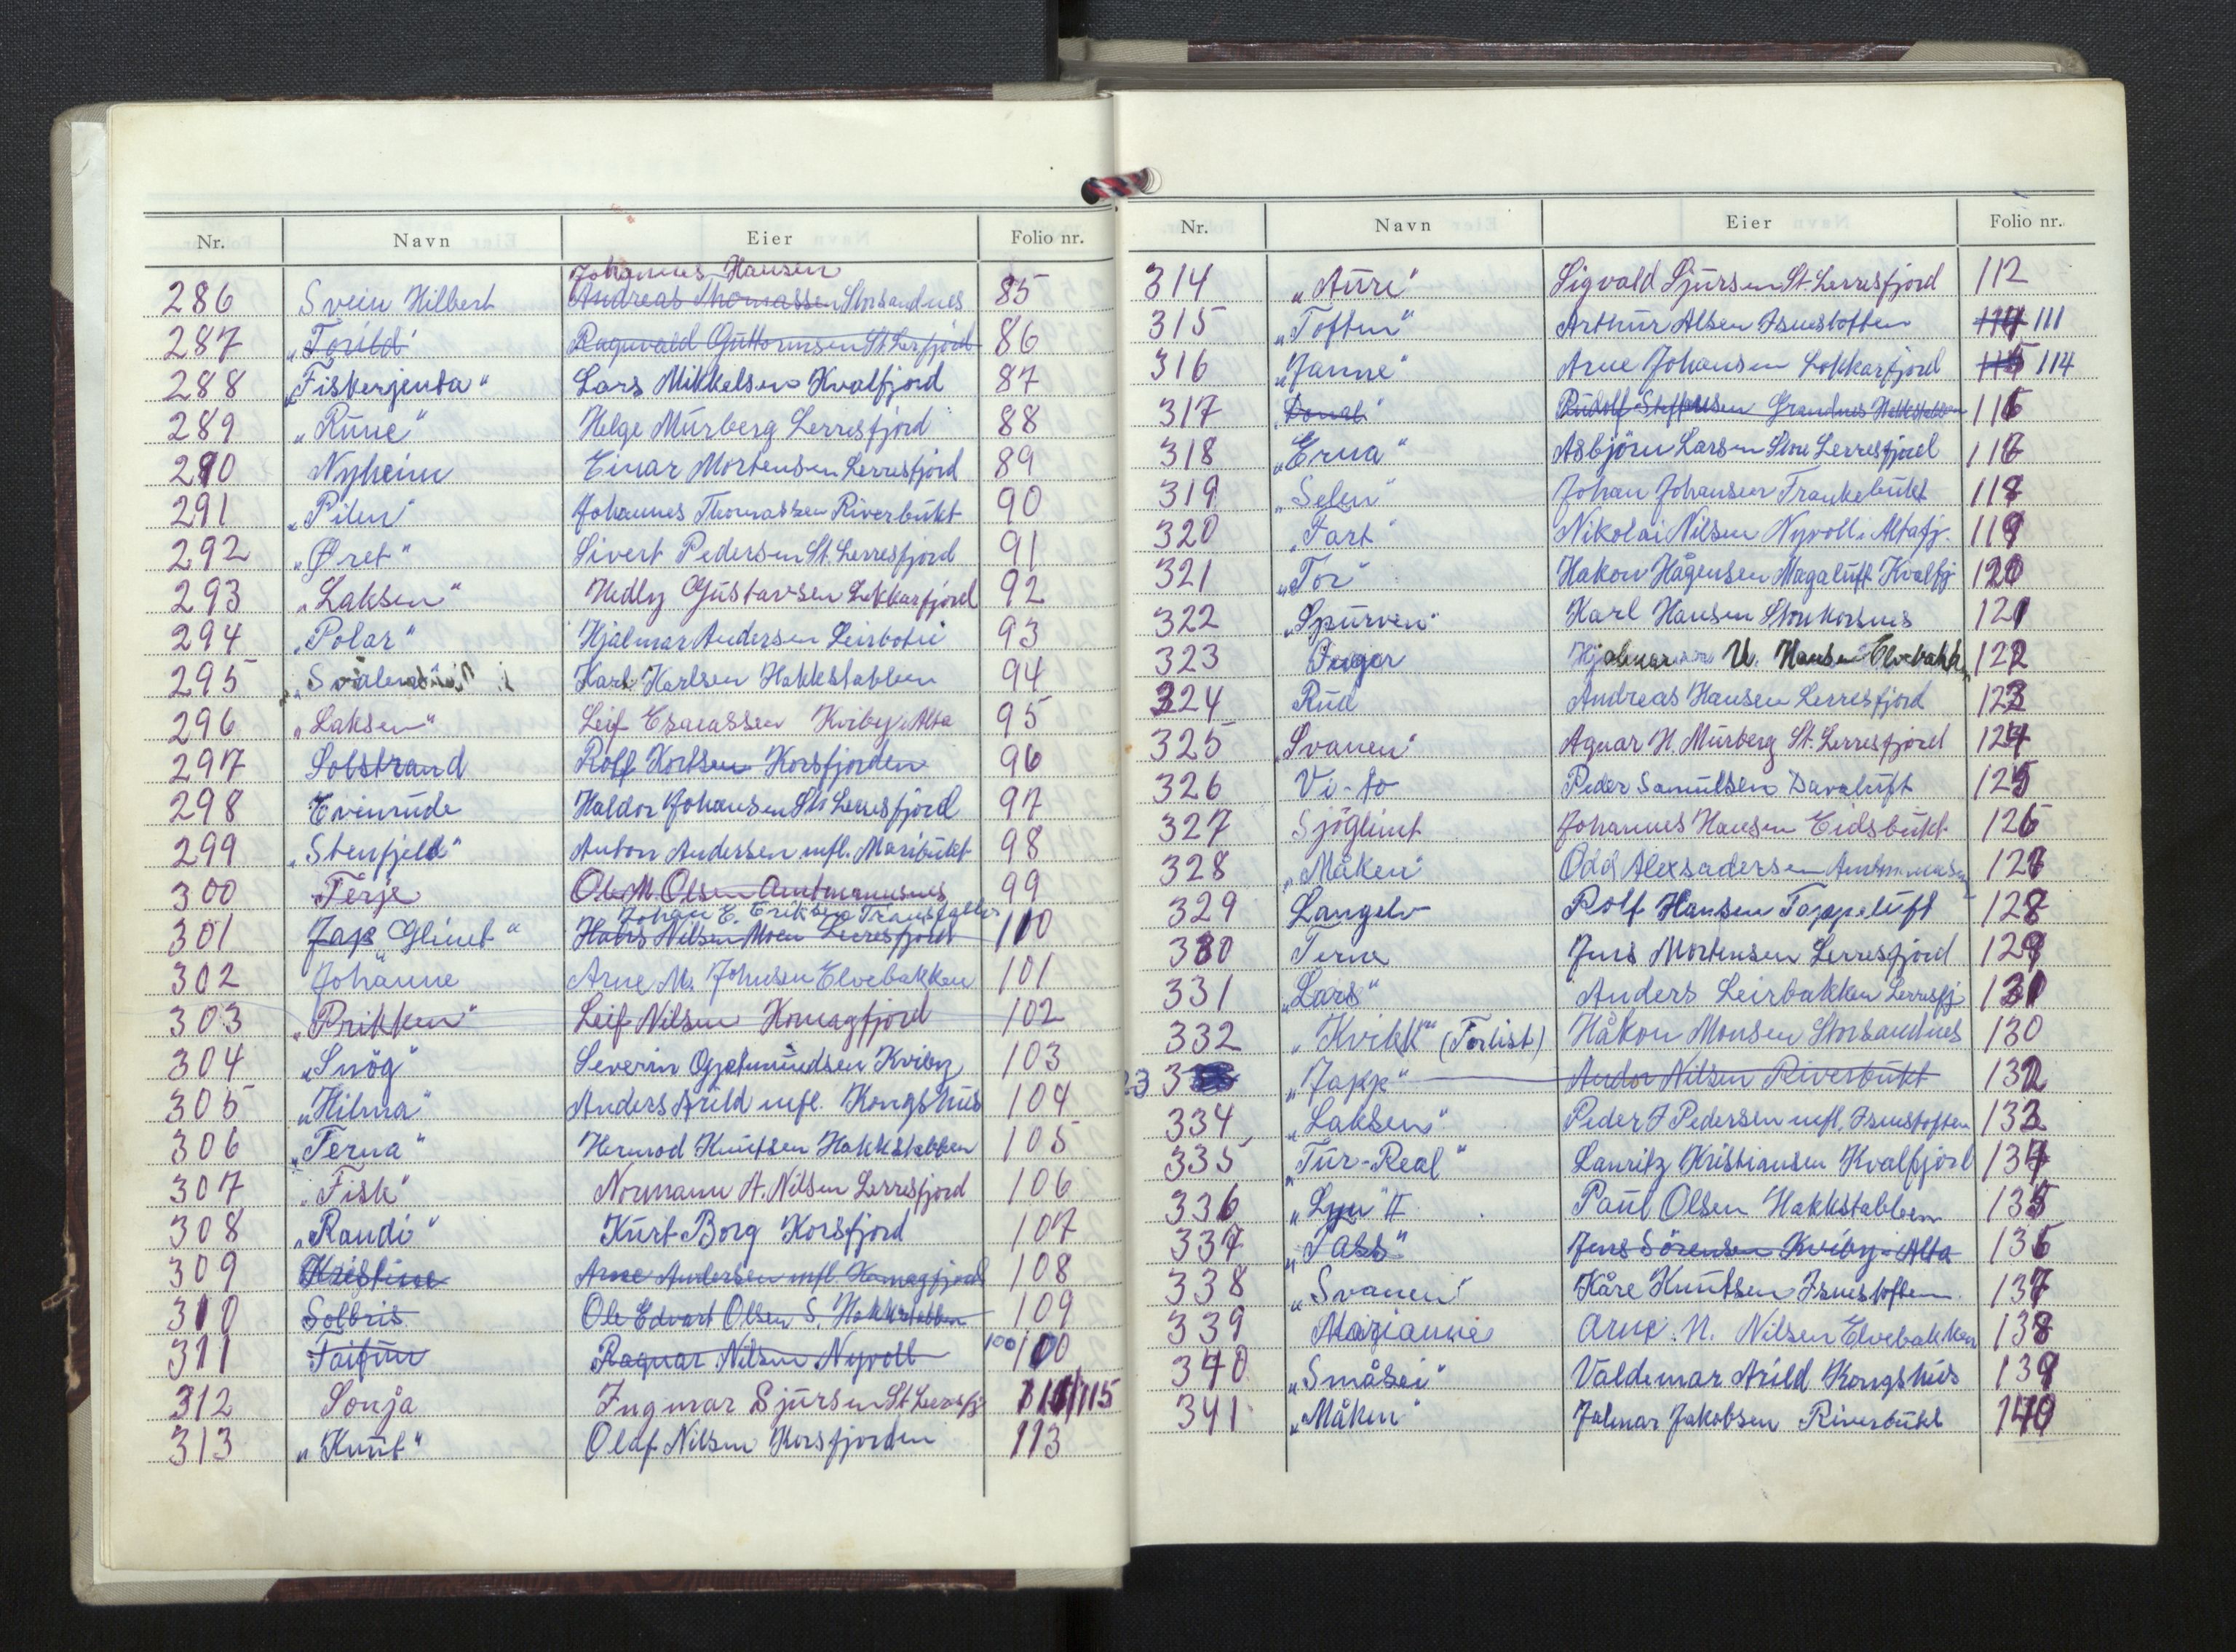 Nr. Navn Eier Folio nr.
Johannes Hansen
286 Svein Hilbert Andreas Thomassen Storsandnes 85
287 „Torild" Ragnvald Guttormsen St. Lerfjord 86
288 „Fiskerjenta" Lars Mikkelsen Kvalfjord 87
289 „Rune" Helge Murberg Lerresfjord 88
290 Nyheim Einar Mortensen Lerresfjord 89
291 „Pilen" Johannes Thomassen Riverbukt 90
292 „Øret" Sivert Pedersen St. Lerresfjord 91
293 „Laksen" Hedly Gustavsen Lokkarfjord 92
294 „Polar" Hjalmar Andersen Leirbotn 93
295 Karl Karlsen Hakkstabben 94
296 „Laksen" Leif Esaiassen Kviby i Alta 95
297 Solstrand Rolf Kortsen Korsfjorden 96
298 Evinrude Haldor Johansen St. Lerresfjord 97
299 „Stenfjeld" Anton Andersen mfl. Maribukt 98
300 Terje Ole M. Olsen Amtmannsnes 99
Johan E. Eriksen
301 Jap Glimt" Hans Nilsen Moen Lerresfjord 100
302 Johanne Arne M. Johnsen Elvebakken 101
303 „Prikken" Leif Nilsen Komagfjord 102
304 „Snög" Severin Kviby 103
305 „Hilma" Anders Arild mfl. Kongshus 104
306 „Terna" Hermod Knutsen Hakkstabben 105
307 „Fisk" Normann A. Nilsen Lerresfjord 106
308 „Randi" Kurt Borg Korsfjord 107
309 Kristine Arne Andersen mfl. Komagfjord 108
310 Solbris Ole Edvart Olsen S. Hakkstabben 109
311 Taifun Ragnar Nilsen Nyvoll 100 100
312 Sonja Ingmar Sjursen St. Lerresfj. 111/115
313 „Knut" Olaf Nilsen Korsfjorden 113
Nr. Navn Eier Folio nr.
314 „Auri" Sigvald Sjursen St. Lerresfjord 112
315 „Toften" Arthur Olsen Isnestoften 114 111
316 „Janne" Arne Johansen Lokkarfjord 115 114
317 „Donab" Rudolf Steffensen Grandnes Hakkstabben 116
318 „Erna" Asbjörn Larsen Store Lerresfjord 116
319 „Selen" Johan Johansen Trankebukt 118
320 „Fart" Nikolai Nilsen Nyvoll i Altafj. 119
321 „Tor" Håkon Hågensen Magaluft Kvalfj 120
322 „Spurven" Karl Hansen Storekorsnes 121
323 Hjalmar U. Hansen Elvebakken 122
324 Rud Andreas Hansen Lerresfjord 123
325 „Svanen" Agnar N. Murberg St. Lerresfjord 124
326 Vi-to Peder Samulsen Davaluft 125
327 Sjöglimt Johannes Hansen Eidsbukt 126
328 „Måken" Odd Alexsadersen Amtmannsnes 127
329 Langelv Rolf Hansen Tappeluft 128
330 Terna Jens Mortensen Lerresfjord 129
331 „Lars" Anders Leirbakken Lerresfj. 131
332 „Kvikk" (Forlist) Håkon Monsen Storsandnes 130
3 „Japp" Andor Nilsen Riverbukt 132
334 „Laksen" Peder J Pedersen mfl. Isnestoften 133
335 „Tur-Real" Lauritz Kristiansen Kvalfjord 134
336 „Lyn" II Paul Olsen Hakkstabben 135
337 „Tass" Jens Sörensen Kviby i Alta 136
338 „Svanen" Kåre Knutsen Isnestoften 137
339 Marianne Arne N. Nilsen Elvebakken 138
340 „Småsei" Valdemar Arild Kongshus 139
341 „Måken" Jalmar Jakobsen Riverbukt 140